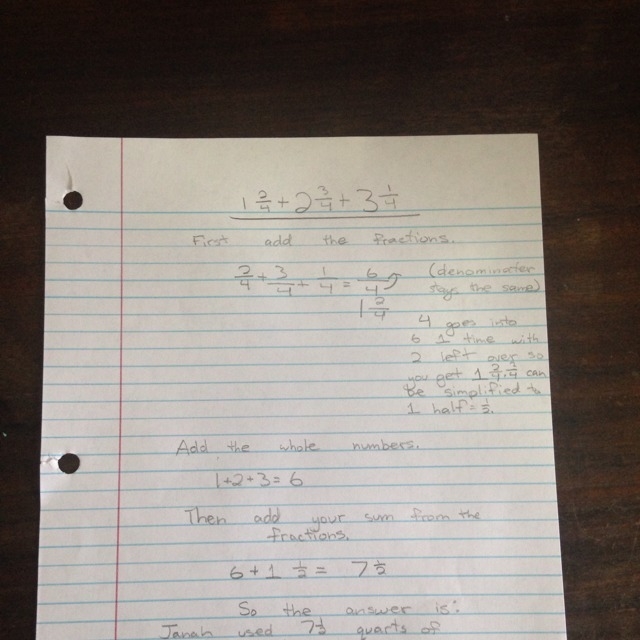 1 2/4 + 2 3/4 + 3 1/4
First add the fractions.
2/4 + 3/4 + 1/4 = 6/4
1 2/4
(denominater
stays the same)
4 goes into
6 1 time with
2 left over so
you get 1 2/4. 2/4 can
be simplified to
1 half = 1/2.
Add the whole numbers.
1+2+3=6
Then add your sum from the
fractions.
6 + 1 1/2 = 7 1/2
So the answer is:
Janah used 7 1/2 quarts of